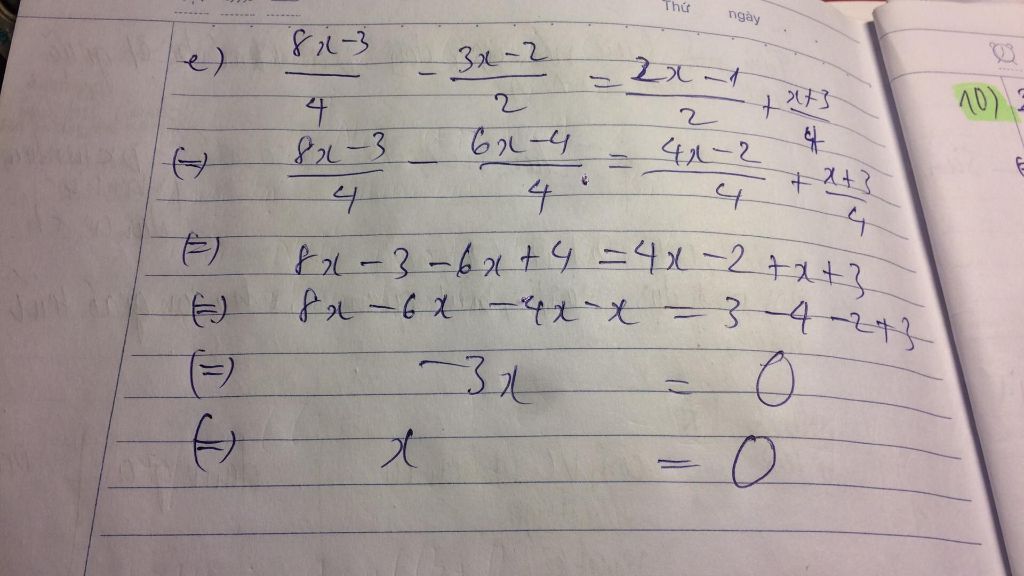 Thứ ngày
e) \frac{8x-3}{4} - \frac{3x-2}{2} = \frac{2x-1}{2} + \frac{x+3}{4}
(=) \frac{8x-3}{4} - \frac{6x-4}{4} = \frac{4x-2}{4} + \frac{x+3}{4}
(=) 8x-3-6x+4=4x-2+x+3
(=) 8x-6x-4x-x=3-4-2+3
(=) -3x=0
(=) x=0
10)